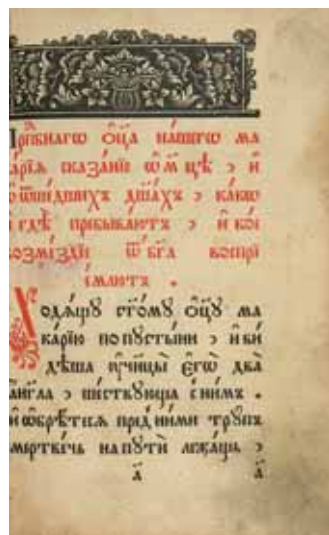 Прпⷣбнагѡ ѻ҆ц҃а нашегѡ ма
карїѧ сказа́нїе ѡ҆ м҃ цѣ , и҆
ѡ҆ ѿше́дшихъ дш҃ахъ , ка́кѡ
и҆ гдѣ̀ пребыва́ютъ , и҆ коѐ
возме́здїе ѿ бг҃а воспрї
е́млютъ .
Ходѧ́щꙋ ст҃о́мꙋ ѻ҆ц҃ꙋ̀ ма
ка́рїю по пꙋсты́ни , и҆ ви́
дѣша ᲂу҆чн҃цы̀ є҆гѡ̀ два̀
а҆́нг҃ла , ше́ствꙋюща с ни́мъ .
и҆ ѡ҆брѣ́тесѧ пред ни́ми трꙋ́пъ
ме́ртвечь на пꙋтѝ лежа́щь ,
а҃ а҃